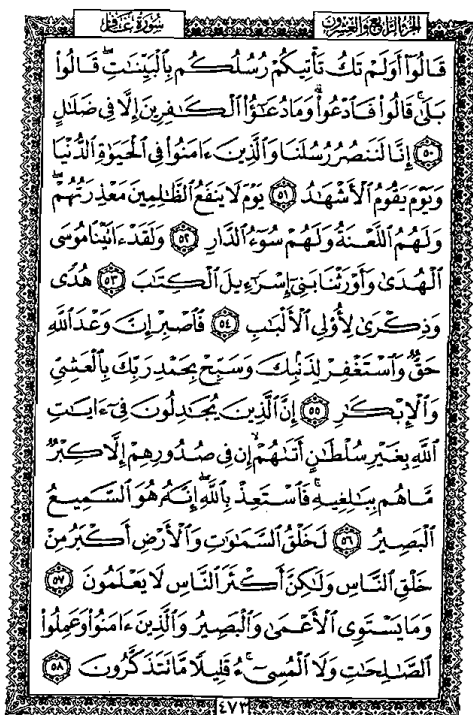 سُورَةُ غَافِرٍ الجُزْءُ الرَّابِعُ وَالعِشْرُونَ
قَالُوٓا۟ أَوَلَمْ تَكُ تَأْتِيكُمْ رُسُلُكُم بِٱلْبَيِّنَٰتِ ۖ قَالُوا۟
بَلَىٰ ۚ قَالُوا۟ فَٱدْعُوا۟ ۗ وَمَا دُعَٰٓؤُا۟ ٱلْكَٰفِرِينَ إِلَّا فِى ضَلَٰلٍ
۝٥٠ إِنَّا لَنَنصُرُ رُسُلَنَا وَٱلَّذِينَ ءَامَنُوا۟ فِى ٱلْحَيَوٰةِ ٱلدُّنْيَا
وَيَوْمَ يَقُومُ ٱلْأَشْهَٰدُ ۝٥١ يَوْمَ لَا يَنفَعُ ٱلظَّٰلِمِينَ مَعْذِرَتُهُمْ ۖ
وَلَهُمُ ٱللَّعْنَةُ وَلَهُمْ سُوٓءُ ٱلدَّارِ ۝٥٢ وَلَقَدْ ءَاتَيْنَا مُوسَى
ٱلْهُدَىٰ وَأَوْرَثْنَا بَنِىٓ إِسْرَٰٓءِيلَ ٱلْكِتَٰبَ ۝٥٣ هُدًى
وَذِكْرَىٰ لِأُو۟لِى ٱلْأَلْبَٰبِ ۝٥٤ فَٱصْبِرْ إِنَّ وَعْدَ ٱللَّهِ
حَقٌّ وَٱسْتَغْفِرْ لِذَنۢبِكَ وَسَبِّحْ بِحَمْدِ رَبِّكَ بِٱلْعَشِىِّ
وَٱلْإِبْكَٰرِ ۝٥٥ إِنَّ ٱلَّذِينَ يُجَٰدِلُونَ فِىٓ ءَايَٰتِ
ٱللَّهِ بِغَيْرِ سُلْطَٰنٍ أَتَىٰهُمْ ۙ إِن فِى صُدُورِهِمْ إِلَّا كِبْرٌ
مَّا هُم بِبَٰلِغِيهِ ۚ فَٱسْتَعِذْ بِٱللَّهِ ۖ إِنَّهُۥ هُوَ ٱلسَّمِيعُ
ٱلْبَصِيرُ ۝٥٦ لَخَلْقُ ٱلسَّمَٰوَٰتِ وَٱلْأَرْضِ أَكْبَرُ مِنْ
خَلْقِ ٱلنَّاسِ وَلَٰكِنَّ أَكْثَرَ ٱلنَّاسِ لَا يَعْلَمُونَ ۝٥٧
وَمَا يَسْتَوِى ٱلْأَعْمَىٰ وَٱلْبَصِيرُ وَٱلَّذِينَ ءَامَنُوا۟ وَعَمِلُوا۟
ٱلصَّٰلِحَٰتِ وَلَا ٱلْمُسِىٓءُ ۚ قَلِيلًا مَّا تَتَذَكَّرُونَ ۝٥٨
٤٧٣